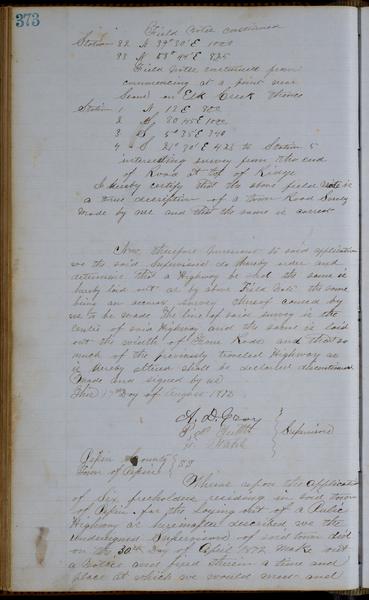 373
Field Notes continued
Station 22 N 39° 30' E 1000
23 N 53° 44' E 825
Field notes continued from
commencing at a point near
on Elk Creek thence
Station 1 N 13 E 300
2 30 45 E 1000
3 5° 35 E 340
4 21° 30' E 425 to Station 5
intersecting survey from the end
of Road at top of Ridge
I hereby certify that the above field notes is
a true description of a town Road Survey
made by me and that the same is correct
Now therefore pursuant to said application
we the said Supervisors do hereby order and
determine that a Highway be and the same is
hereby laid out as by above Field Notes the same
being an accurate survey thereof caused by
us to be made The line of said survey is the
center of said Highway and the same is laid
out the width of Rods and that so
much of the previously traveled Highway as
is hereby altered shall be declared discontinued
Made and signed by us
this Day of August 1872
A. D. Gray
Supervisors
Pepin County
Town of Pepin SS
Whereas upon the application
of Six freeholders residing in said town
of Pepin for the laying out of a Public
Highway as hereinafter described we the
undersigned Supervisors of said town did
on the 30th Day of April 1872 make out
a notice and fixed therein a time and
place at which we would meet and